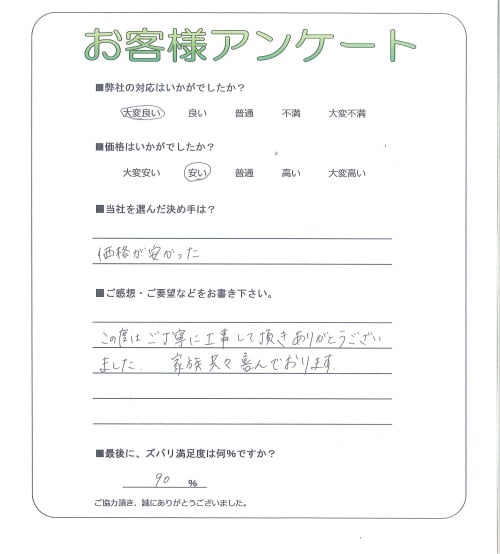 お客様アンケート
■弊社の対応はいかがでしたか？
大変良い 良い 普通 不満 大変不満
■価格はいかがでしたか？
大変安い 安い 普通 高い 大変高い
■当社を選んだ決め手は？
価格が安かった
■ご感想・ご要望などをお書き下さい。
この度はご丁寧に工事して頂きありがとうござい
ました。 家族共々喜んでおります。
■最後に、ズバリ満足度は何％ですか？
90 ％
ご協力頂き、誠にありがとうございました。